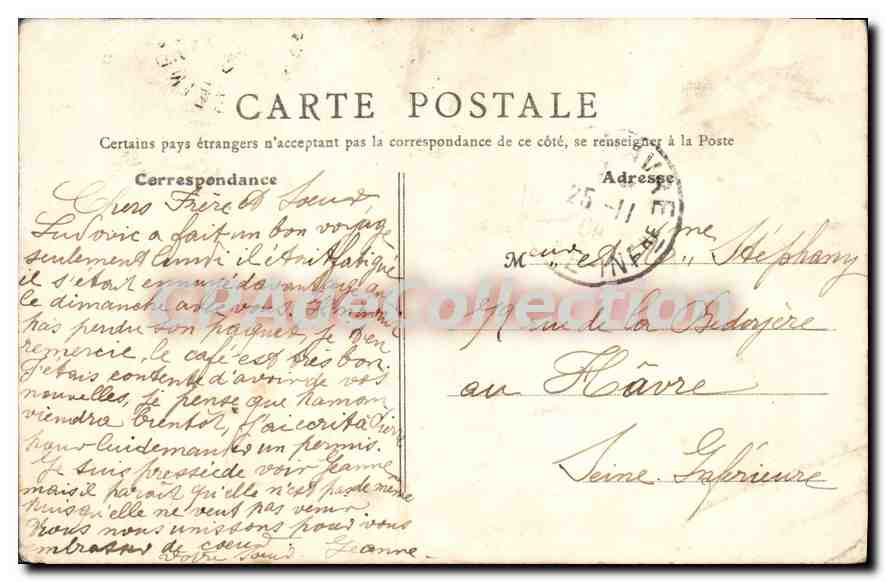 CARTE POSTALE
Certains pays étrangers n'acceptant pas la correspondance de ce côté, se renseigner à la Poste
Correspondance
Adresse
Chers Frère et Sœur,
Ludovic a fait un bon voyage
seulement lundi il était fatigué
il s'était ennuyé davantage
le dimanche avec vous.
pas perdu son paquet, je t'en
remercie, le café est très bon.
J'étais contente d'avoir de vos
nouvelles, je pense que maman
viendra bientôt, j'ai ecrit à Pierre
pour lui demander un permis.
Je suis pressée de voir Jeanne
mais il paraît qu'elle n'est pas de même
puisqu'elle ne veut pas venir
Nous nous unissons pour vous
embrasser de cœur
Votre Sœur Jeanne
HAVRE
25 - 11
Meur et Me Stéphany
rue de la Bedoyère
au Hâvre
Seine Inférieure
CPACollection